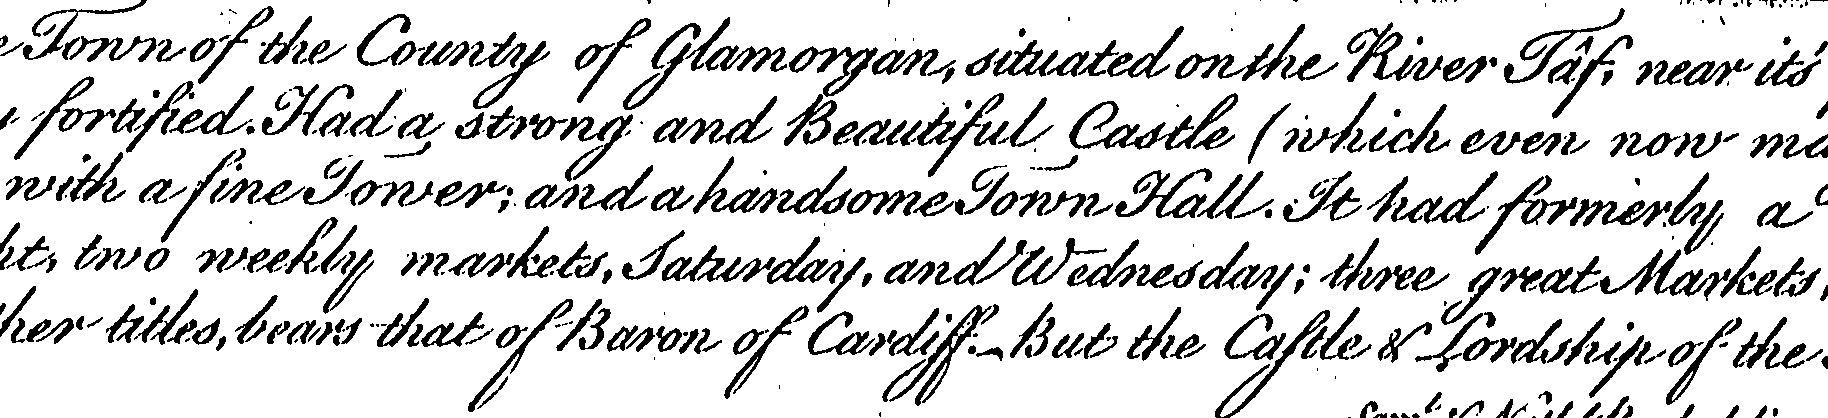 Town of the County of Glamorgan, situated on the River Tâf, near it's
fortified. Had a strong and Beautiful Castle (which even now
with a fine Tower; and a handsome Town Hall. It had formerly a
two weekly markets, Saturday, and Wednesday; three great Markets,
titles, bears that of Baron of Cardiff. _ But the Caſtle & Lordship of the